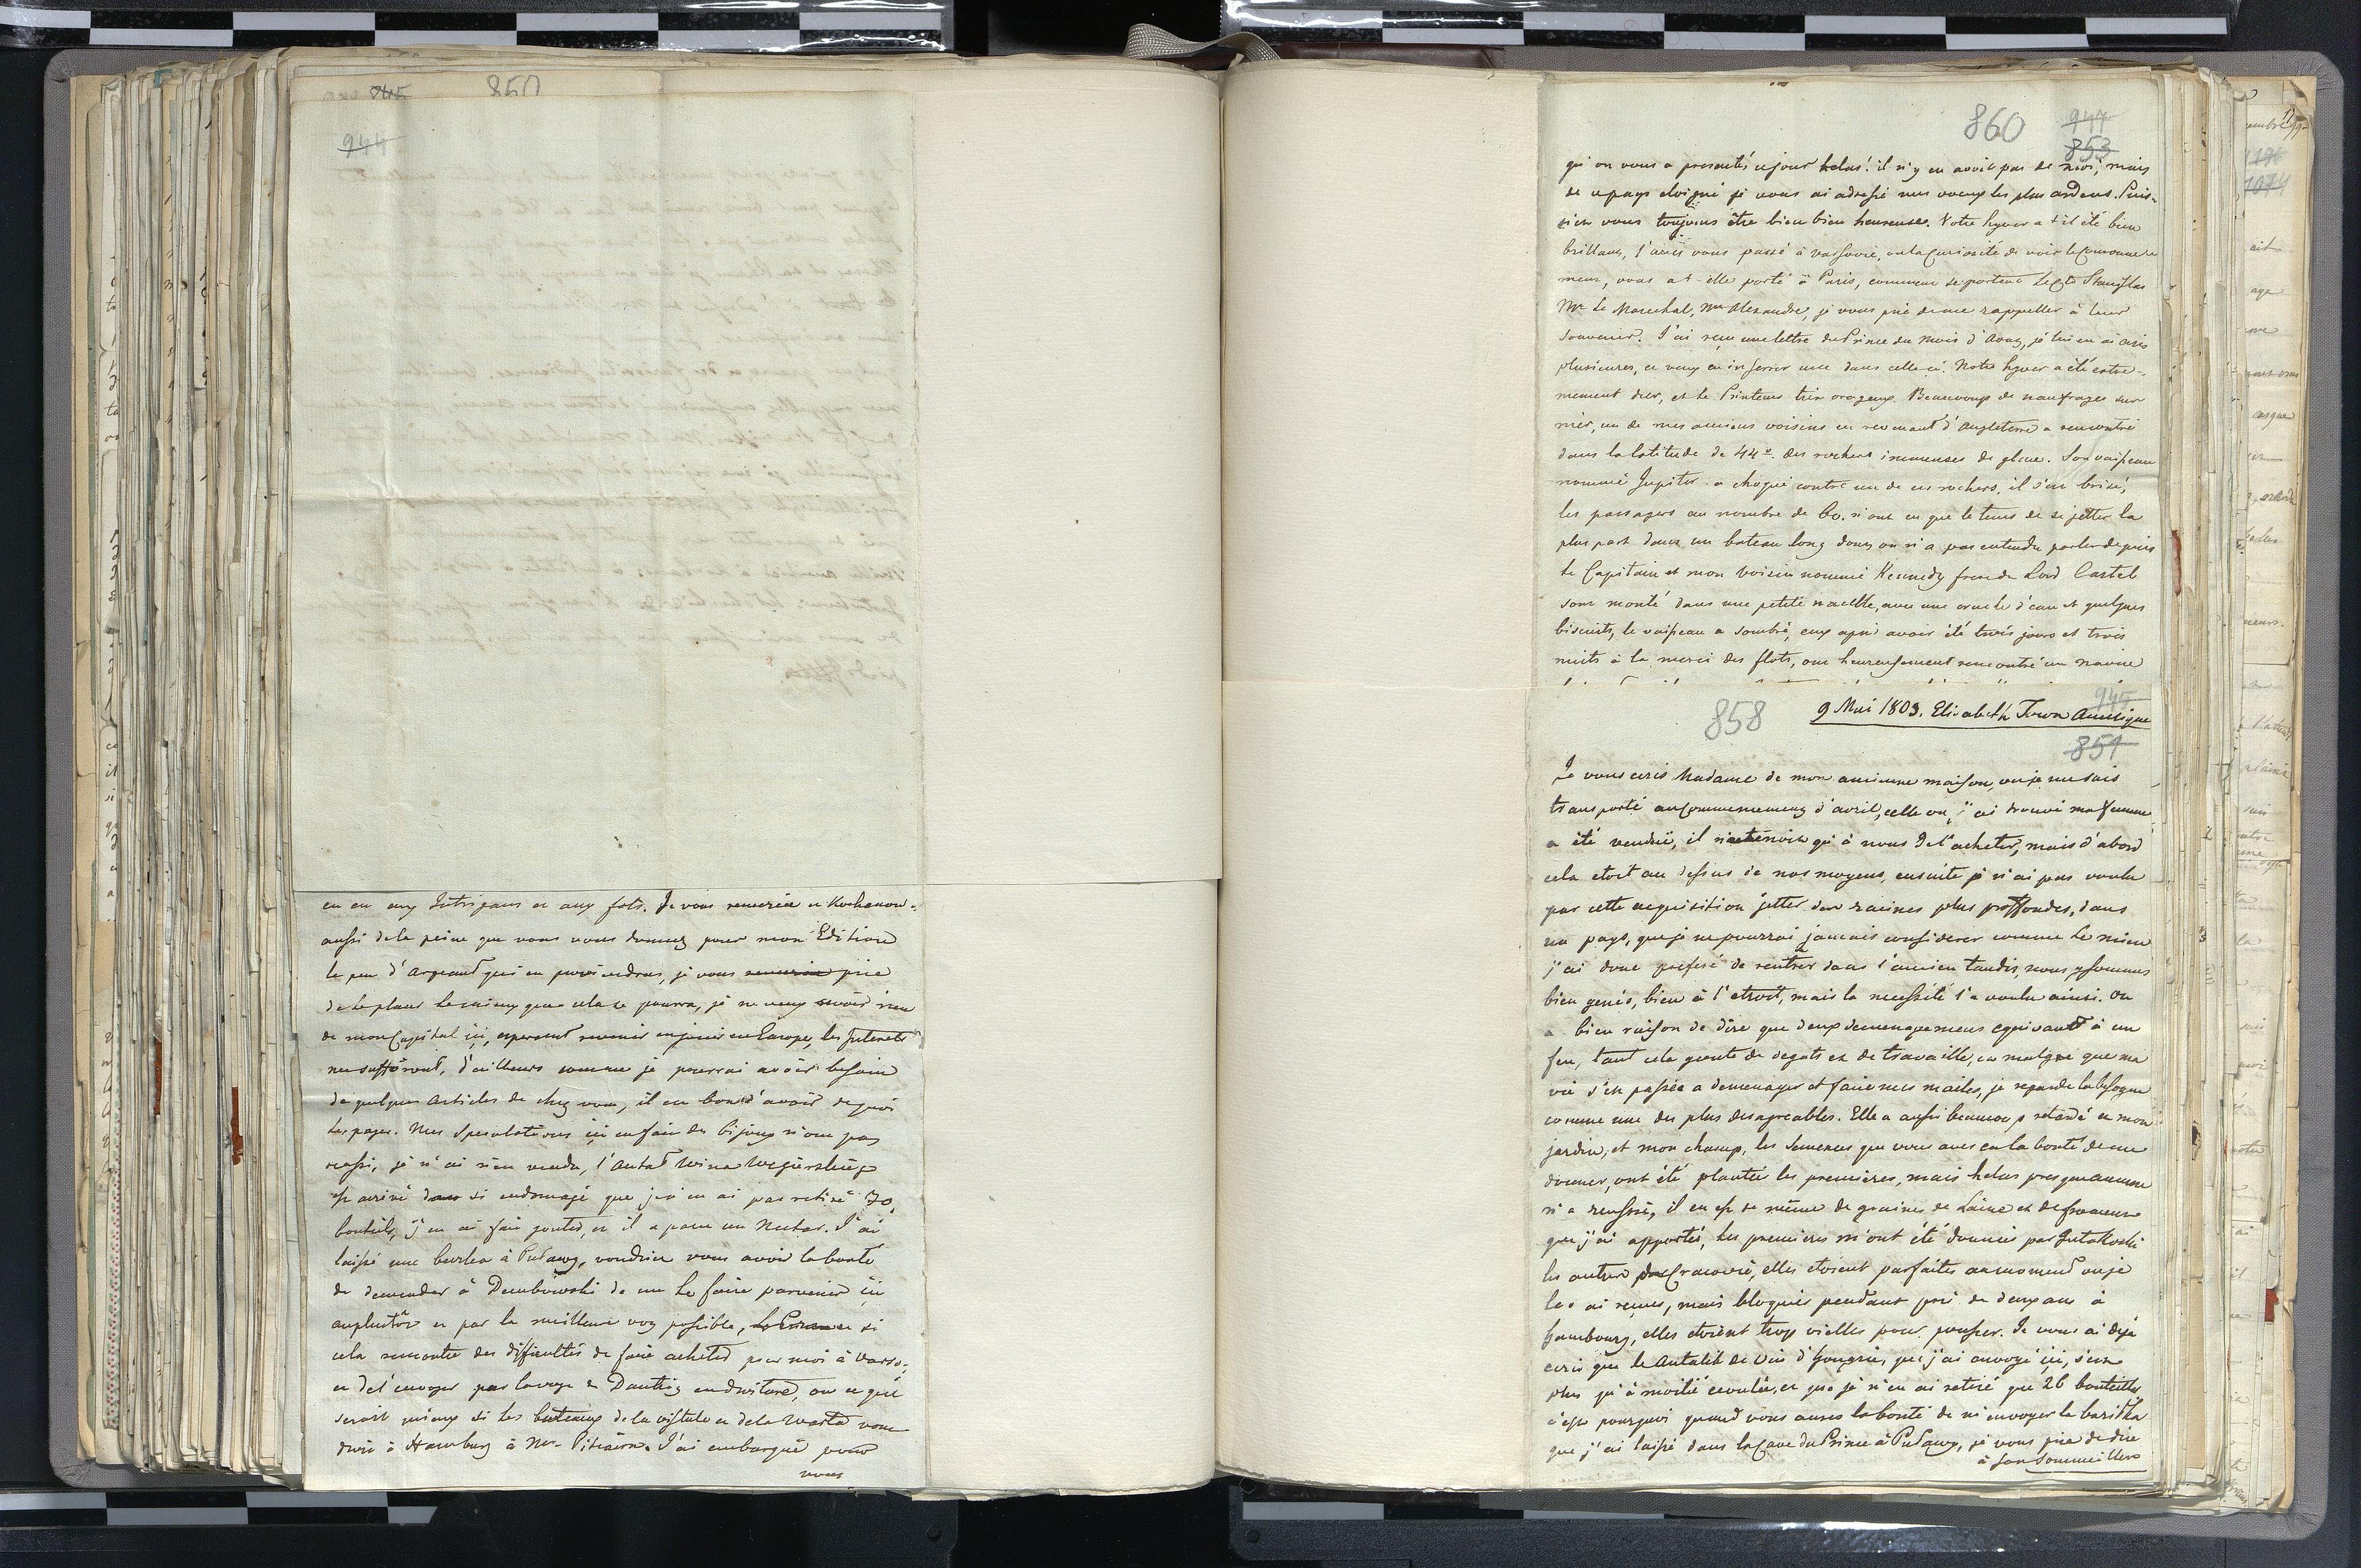 850
944
en en aux Intrigans et aux fots. Je vous remercie et Kochanow-
aussi de la peine que vous vous donnez pour mon Edition
le peu d'Argeant qui en proviendras, je vous remercie prie
de le placer le mieux que cela se pourra, je ne veux avoir rien
de mon Capital ici, esperant revenir en jouir en Europe, les Interets
me suffiront, d'ailleurs comme je pourrai avoir besoin
de quelques articles de chez vous, il est bon d'avoir de quoi
les payer. Mes Speculations ici en fait des bijoux n'ont pas
reussi, je n'ai rien vendu, l'Antał wina Węgierskiego
est arrivé si endomagé que je n'en ai pas retiré 30
bouteils, j'en ai fait gouter, et il a paru un Nectar. J'ai
laissé une baryłka à Puławy, voudriez vous avoir la bonté
de demander à Dembowski de me le faire parvenir ici
au plustôt et par la meilleure voy possible, si
cela rencontre des difficultés de faire acheter pour moi à Varso-
et de l'envoyer par Dantzig en droiture, ou ce qui
seroit mieux si les bateaux de la vistule et de la Warta vont
droit à Hamburg à Mr. Pitcairn. J'ai embarqué pour
vous
860
944
853
qu'on vous a presentés ce jour helas! il n'y en avoit pas de moi, mais
de ce pays eloigné je vous ai adressé mes voeux les plus ardens. Puis-
siez vous toujours être bien bien heureuse. Votre hyver a t-il été bien
brillant, l'avez vous passé à varsovie, ou la Curiosité de voir le Couronne-
ment, vous a t-elle porté à Paris, comment se portent le Cte Stanislas
Mr Le Marechal, Mr Alexandre, je vous prie de me rappeller à leur
Souvenir. J'ai reçu une lettre du Prince du Mois d'Aout, je lui en ai ecris
plusieures, et veux en inserer une dans celle ci. Notre hyver a été extre-
mement dur, et le Printems très orageux. Beaucoup de naufrages sur
mer, un de mes anciens voisins en revenant d'Angleterre a rencontré
dans la latitude de 44º. des rochers immenses de glace. Son vaisseau
nommé Jupiter a choqué contre un de ces rochers, il s'est brisé,
les passagers au nombre de 60. n'ont eu que le tems de se jetter la
plus part dans un bateau long dont on n'a pas entendu parler depuis
le Capitain et mon voisin nommé Kennedy frere de Lord Castel
sont monté dans une petite nacelle, avec une cruche d'eau et quelques
biscuits, le vaisseau a sombré, eux après avoir été trois jours et trois
nuits à la merci des flots, ont heureusement rencontré un navire
858
945
9 Mai 1803. Elisabeth Town Amerique
851
Je vous ecris Madame de mon ancienne maison, ou je me suis
transporté au Commencement d'avril, celle ou j'ai trouvé ma femme
a été vendüe, il ne tenoit qu'à nous de l'acheter, mais d'abord
cela etoit au dessus de nos moyens, ensuite je n'ai pas voulu
par cette acquisition jetter des racines plus proffondes, dans
un pays, que je ne pourrai jamais considerer comme le mien
j'ai donc preferé de rentrer dans l'ancien taudis, nous y sommes
bien genés, bien à l'etroit, mais la necessité l'a voulu ainsi. On
a bien raison de dire que deux demenagemens equivaut à un
feu, tant cela coute de degats et de travaille, et malgré que ma
vie s'est passée a demenager et faire mes malles, je regarde la besogne
comme une des plus desagreables. Elle a aussi beaucoup retardé et mon
jardin, et mon champ, les Semences que vous avez eu la bonté de me
donner, ont été plantée les premieres, mais helas presqu'aucune
n'a reussie, il en est de même de graines de et de froment
que j'ai apportés, les premieres m'ont été données par
les autres de Cracovie, elles etoient parfaites au moment ou je
les ai reçues, mais bloquées pendant près de deux ans à
Hambourg, elles etoient trop vielles pour pousser. Je vous ai deja
ecris que le Antałek de vin d'Hongrie, que j'ai envoyé ici, s'est
plus qu'à moitié ecoulée, et que je n'en ai retiré que 26 bouteilles
c'est pourquoi quand vous aurez la bonté de m'envoyer la baryłka
que j'ai laissé dans la Cave du Prince à Puławy, je vous prie de dire
à son Sommeillier